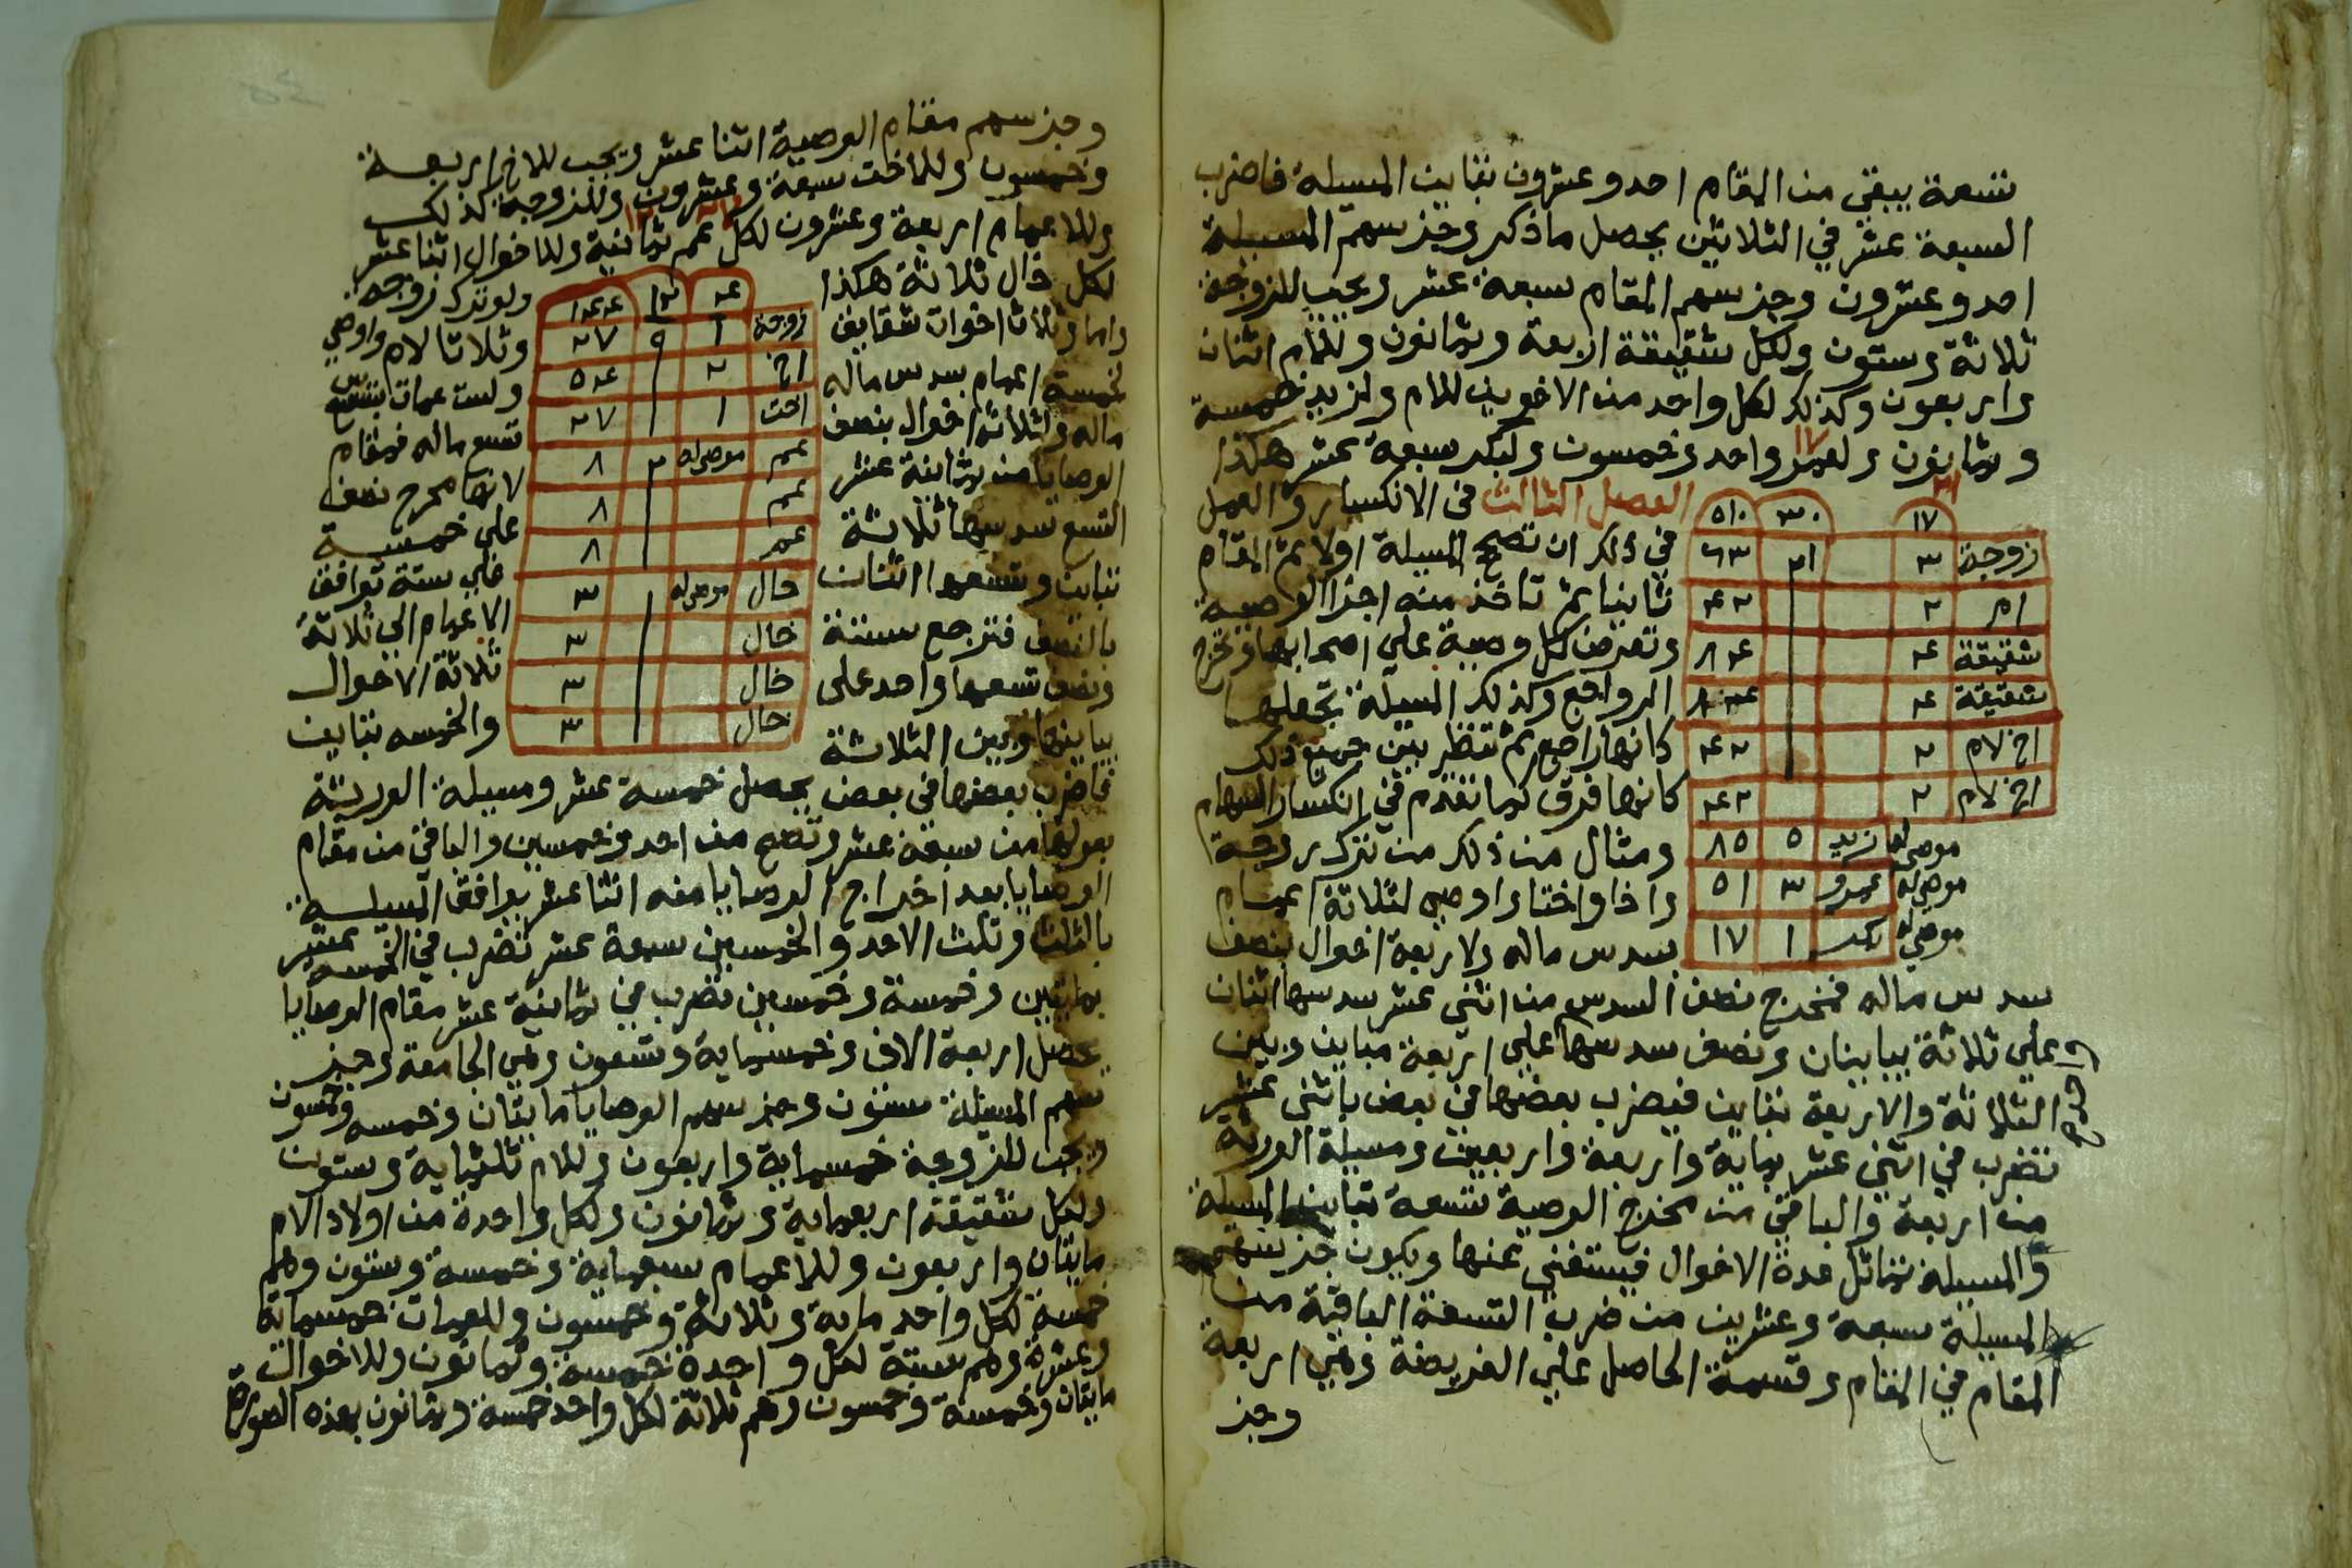 تسعة يبقي من المقام احد وعشرون تباين المسيلة فاضرب
السبعة عشر في الثلاثين يحصل ما ذكر وجز سهم المسيلة
احد وعشرون وجز سهم المقام سبعة عشر ويجب للزوجة
ثلاثة وستون ولكل شقيقة اربعة وثمانون وللام اثنان
واربعون وكذلك لكل واحد من الاخوين للام ولزيد خمسة
وثمانون ولعمرو واحد وخمسون ولبكر سبعة عشر هكذا
الفصل الثالث في الانكسار والعمل
في ذلك ان تصحح المسيلة اولا ثم المقام
ثانيا ثم تاخذ منه اجزا الوصية
وتعرض كل وصية علي اصحابها وتخرج
الرواجع وكذلك المسيلة تجعلها
كانها راجع ثم تنظر بين جميع ذلك
كانها فرق كما تقدم في انكسار السهام
ومثال من ذلك من ترك زوجة
واخا واختا واوصي لثلاثة اعمام
بسدس ماله ولاربعة اخوال بنصف
١٧ ٣٠ ٥١٠
زوجة ٣ ٢١ ٦٣
ام ٢ ٤٢
شقيقة ٤ ٨٤
شقيقة ٤ ٨٤
اخ لام ٢ ٤٢
اخ لام ٢ ٤٢
موصي له زيد ٥ ٨٥
موصي له عمرو ٣ ٥١
موصي له بكر ١ ١٧
سدس ماله فمخرج نصف السدس من اثني عشر سدسها اثنان
علي ثلاثة يباينان ونصف سدسها علي اربعة مباين وبين
الثلاثة والاربعة تباين فيضرب بعضها في بعض باثني عشر
تضرب في اثني عشر بماية واربعة واربعين ومسيلة الورثة
من اربعة والباقي من مخرج الوصية تسعة تباين المسيلة
والمسيلة تماثل عدة الاخوال فيستغني عنها ويكون جز سهم
المسيلة سبعة وعشرين من ضرب التسعة الباقية من
المقام في المقام وقسمة الحاصل علي الفريضة وهي اربعة
وجز
وجز سهم مقام الوصية اثنا عشر ويجب للاخ اربعة
وخمسون وللاخت سبعة وعشرون وللزوجة كذلك
وللاعمام اربعة وعشرون لكل عم ثمانية وللاخوال اثنا عشر
لكل خال ثلاثة هكذا ولو ترك زوجة
واما وثلاث اخوات شقايق وثلاثا لام واوصي
لخمسة اعمام بسدس ماله ولست عمات بتسع
ماله ولثلاثة اخوال بنصف تسع ماله فمقام
الوصايا من ثمانية عشر لانها مخرج نصف
التسع سدسها ثلاثة علي خمسة
تباين وتسعها اثنان علي ستة توافق
بالنصف فترجع ستة الاعمام الي ثلاثة
ونصف تسعها واحد علي ثلاثة الاخوال
يباينها وبين الثلاثة والخمسه تباين
٤ ١٢ ١٤٤
زوجة ١ ٩ ٢٧
اخ ٢ ٥٤
اخت ١ ٢٧
عم موصي له ٢ ٨
عم ٨
عم ٨
خال موصي له ٣
خال ٣
خال ٣
خال ٣
فاضرب بعضها في بعض يحصل خمسة عشر ومسيلة الورثة
بعولها من سبعة عشر وتصح من احد وخمسين والباقي من مقام
الوصايا بعد اخراج الوصايا منه اثنا عشر يوافق المسيلة
بالثلث وثلث الاحد والخمسين سبعة عشر تضرب في الخمسة عشر
بمايتين وخمسة وخمسين تضرب في ثمانية عشر مقام الوصايا
يحصل اربعة الاف وخمسماية وتسعون وهي الجامعة وجز
سهم المسيلة ستون وجز سهم الوصايا مايتان وخمسه وخمسون
ويجب للزوجة خمسماية واربعون وللام ثلثماية وستون
ولكل شقيقة اربعماية وثمانون ولكل واحدة من اولاد الام
مايتان واربعون وللاعمام سبعماية وخمسة وستون وهم
خمسة لكل واحد ماية وثلاثة وخمسون وللعمات خمسماية
وعشرة وهم ستة لكل واحدة خمسة وثمانون وللاخوال
مايتان وخمسة وخمسون وهم ثلاثة لكل واحد خمسة وثمانون بهذه الصورة